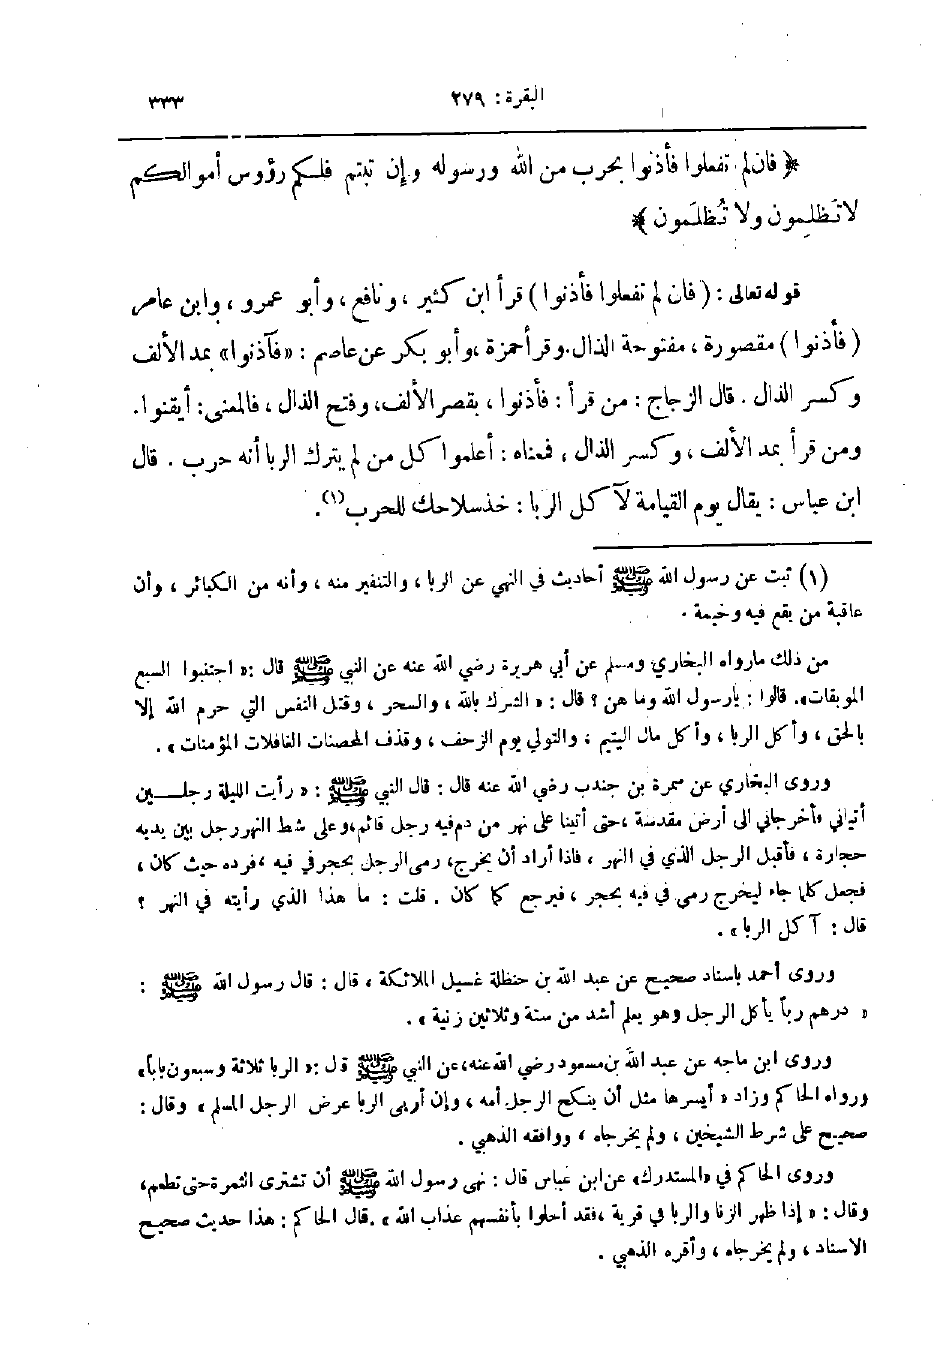 البقرة : ٢٧٩
٣٣٣
﴿ فان لم تفعلوا فأذنوا بحرب من الله ورسوله وإن تبتم فلكم رؤوس أموالكم
لا تَظلِمون ولا تُظلَمون ﴾
قوله تعالى : ( فان لم تفعلوا فأذنوا ) قرأ ابن كثير ، ونافع ، وأبو عمرو ، وابن عامر
( فأذنوا ) مقصورة ، مفتوحة الذال . وقرأ حمزة ، وأبو بكر عن عاصم : « فآذنوا » بمد الألف
وكسر الذال . قال الزجاج : من قرأ : فأذنوا ، بقصر الألف، وفتح الذال ، فالمعنى : أيقنوا .
ومن قرأ بمد الألف ، وكسر الذال ، فمعناه : أعلموا كل من لم يترك الربا أنه حرب . قال
ابن عباس : يقال يوم القيامة لآكل الربا : خذ سلاحك للحرب (١) .
(١) ثبت عن رسول الله ﷺ أحاديث في النهي عن الربا ، والتنفير منه ، وأنه من الكبائر ، وأن
عاقبة من يقع فيه وخيمة .
من ذلك مارواه البخاري ومسلم عن أبي هريرة رضي الله عنه عن النبي ﷺ قال : « اجتنبوا السبع
الموبقات» . قالوا : يارسول الله وما هن ؟ قال : « الشرك بالله ، والسحر ، وقتل النفس التي حرم الله إلا
بالحق ، وأكل الربا ، وأكل مال اليتيم ، والتولي يوم الزحف ، وقذف المحصنات الغافلات المؤمنات » .
وروى البخاري عن سمرة بن جندب رضي الله عنه قال : قال النبي ﷺ : « رأيت الليلة رجلـــين
أتياني فأخرجاني الى أرض مقدسة ، حتى أتينا على نهر من دم فيه رجل قائم ، وعلى شط النهر رجل بين يديه
حجارة ، فأقبل الرجل الذي في النهر ، فاذا أراد أن يخرج، رمى الرجل بحجر في فيه ، فرده حيث كان ،
فجعل كلما جاء ليخرج رمى في فيه بحجر ، فيرجع كما كان . قلت : ما هذا الذي رأيته في النهر ؟
قال : آكل الربا » .
وروى أحمد باسناد صحيح عن عبد الله بن حنظلة غسيل الملائكة ، قال : قال رسول الله ﷺ :
« درهم رباً يأكل الرجل وهو يعلم أشد من ستة وثلاثين زنية » .
وروى ابن ماجه عن عبد الله بن مسعود رضي الله عنه، عن النبي ﷺ قل : « الربا ثلاثة وسبعون باباً »
ورواه الحاكم وزاد « أيسرها مثل أن ينكح الرجل أمه ، وإن أربى الربا عرض الرجل المسلم » وقال :
صحيح على شرط الشيخين ، ولم يخرجاه ، ووافقه الذهبي .
وروى الحاكم في «المستدرك» عن ابن عباس قال : نهى رسول الله ﷺ أن تشترى الثمرة حتى تطعم،
وقال : « إذا ظهر الزنا والربا في قرية ، فقد أحلوا بأنفسهم عذاب الله » . قال الحاكم : هذا حديث صحيح
الاسناد ، ولم يخرجاه ، وأقره الذهبي .